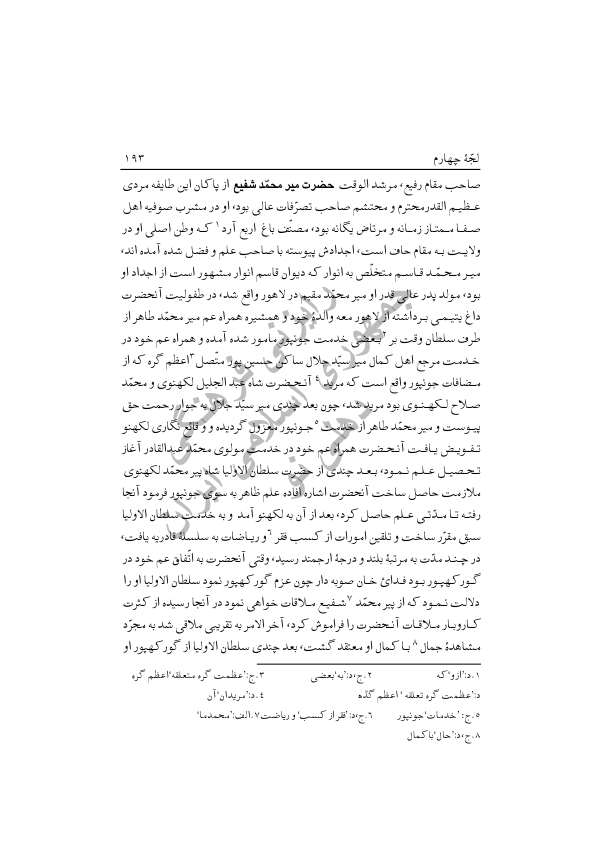 لجّهٔ چهارم ۱۹۳
صاحب مقام رفیع، مرشد الوقت حضرت میر محمّد شفیع از پاکان این طایفه مردی
عظیم القدر محترم و محتشم صاحب تصرّفات عالی بود، او در مشرب صوفیه اهل
صفا ممتاز زمانه و مرتاض یگانه بود، مصنّف باغ اربع آرد۱ که وطن اصلی او در
ولایت به مقام حاف است، اجدادش پیوسته با صاحب علم و فضل شده آمده اند،
میر محمّد قاسم متخلّص به انوار که دیوان قاسم انوار مشهور است از اجداد او
بود، مولد پدر عالی قدر او میر محمّد مقیم در لاهور واقع شد، در طفولیت آنحضرت
داغ یتیمی برداشته از لاهور معه والدهٔ خود و همشیره همراه عم میر محمّد طاهر از
طرف سلطان وقت بر۲ بعضی خدمت جونپور مامور شده آمده و همراه عم خود در
خدمت مرجع اهل کمال میر سیّد جلال ساکن حسین پور متّصل۳ اعظم گره که از
مضافات جونپور واقع است که مرید۴ آنحضرت شاه عبد الجلیل لکهنوی و محمّد
صلاح لکهنوی بود مرید شد، چون بعد چندی میر سیّد جلال به جوار رحمت حق
پیوست و میر محمّد طاهر از خدمت۵ جونپور معزول گردیده و و قائع نگاری لکهنو
تفویض یافت آنحضرت همراه عم خود در خدمت مولوی محمّد عبدالقادر آغاز
تحصیل علم نمود، بعد چندی از حضرت سلطان الاولیا شاه پیر محمّد لکهنوی
ملازمت حاصل ساخت آنحضرت اشاره افاده علم ظاهر به سوی جونپور فرمود آنجا
رفته تا مدّتی علم حاصل کرد، بعد از آن به لکهنو آمد و به خدمت سلطان الاولیا
سبق مقرّر ساخت و تلقین امورات از کسب فقر۶ و ریاضات به سلسلهٔ قادریه یافت،
در چند مدّت به مرتبهٔ بلند و درجهٔ ارجمند رسید، وقتی آنحضرت به اتّفاق عم خود در
گورکهپور بود فدائ خان صوبه دار چون عزم گورکهپور نمود سلطان الاولیا او را
دلالت نمود که از پیر محمّد۷ شفیع ملاقات خواهی نمود در آنجا رسیده از کثرت
کاروبار ملاقات آنحضرت را فراموش کرد، آخر الامر به تقریبی ملاقی شد به مجرّد
مشاهدهٔ جمال۸ با کمال او معتقد گشت، بعد چندی سلطان الاولیا از گورکهپور او
۱.د:’ازو‘که ۲.ج،د:’به‘بعضی ۳.ج:’عظمت گره متعلقه‘اعظم گره
د:’عظمت گره تعلقه‘ اعظم گڈه ۴.د:’مریدان‘آن
۵.ج: ’خدمات‘جونپور ۶.ج،د:’فقر از کسب‘ و ریاضت ۷.الف:’محمدما‘
۸.ج،د:’حال‘باکمال
رایزنی فرهنگی
جمهوری اسلامی ایران
دهلی نو